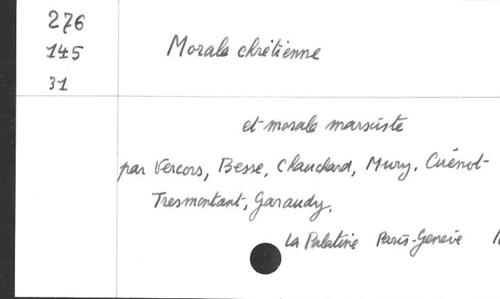 276
145
31
Morale chrétienne
et morale marxiste
par Vercors, Besse, Chauchard, Mury, Cuénot-
Tresmontant, Garaudy.
La Palatine Paris-Genève